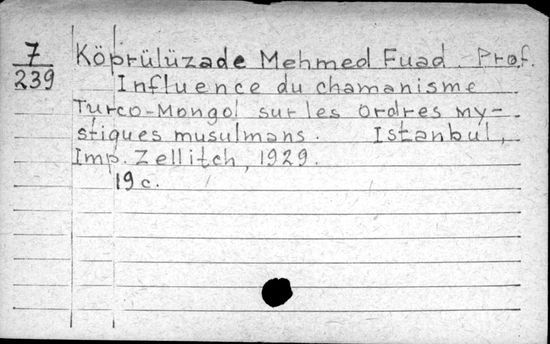 7
239
Köprülüzade Mehmed Fuad. Prof.
Influence du chamanisme
Turco-Mongol sur les ordres my-
stiques musulmans. Istanbul,
Imp. Zellitch, 1929.
19 c.